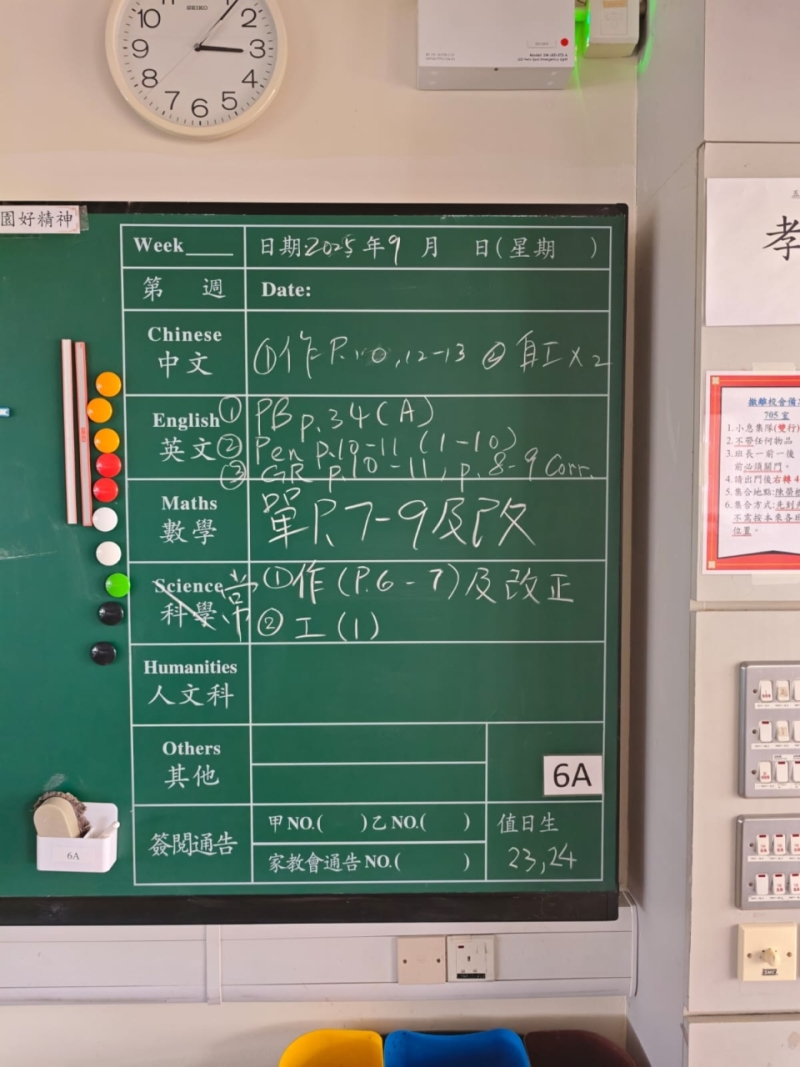 SEIKO
10 2
9 3
8 4
7 6 5
園好精神
Week____ 日期2025年9月 日(星期 )
第 週 Date:
Chinese
中文
①作P.10,12-13 ②自工x2
English
英文
① PB p.34(A)
② Pen p.10-11 (1-10)
③ GR p.10-11, p.8-9 Corr.
Maths
數學
單P.7-9及改
Science
科學
常
①作(P.6-7)及改正
②工(1)
Humanities
人文科
Others
其他
6A
簽閱通告
甲NO.( )乙NO.( )
家教會通告NO.( )
值日生
23,24
6A
孝
705室
1.小息集隊(雙行)
2.不帶任何物品
3.班長一前一後
前必須關門。
4.請出門後右轉4
5.集合地點:陳榮
6.集合方式:先到
不需按本來各班
位置。